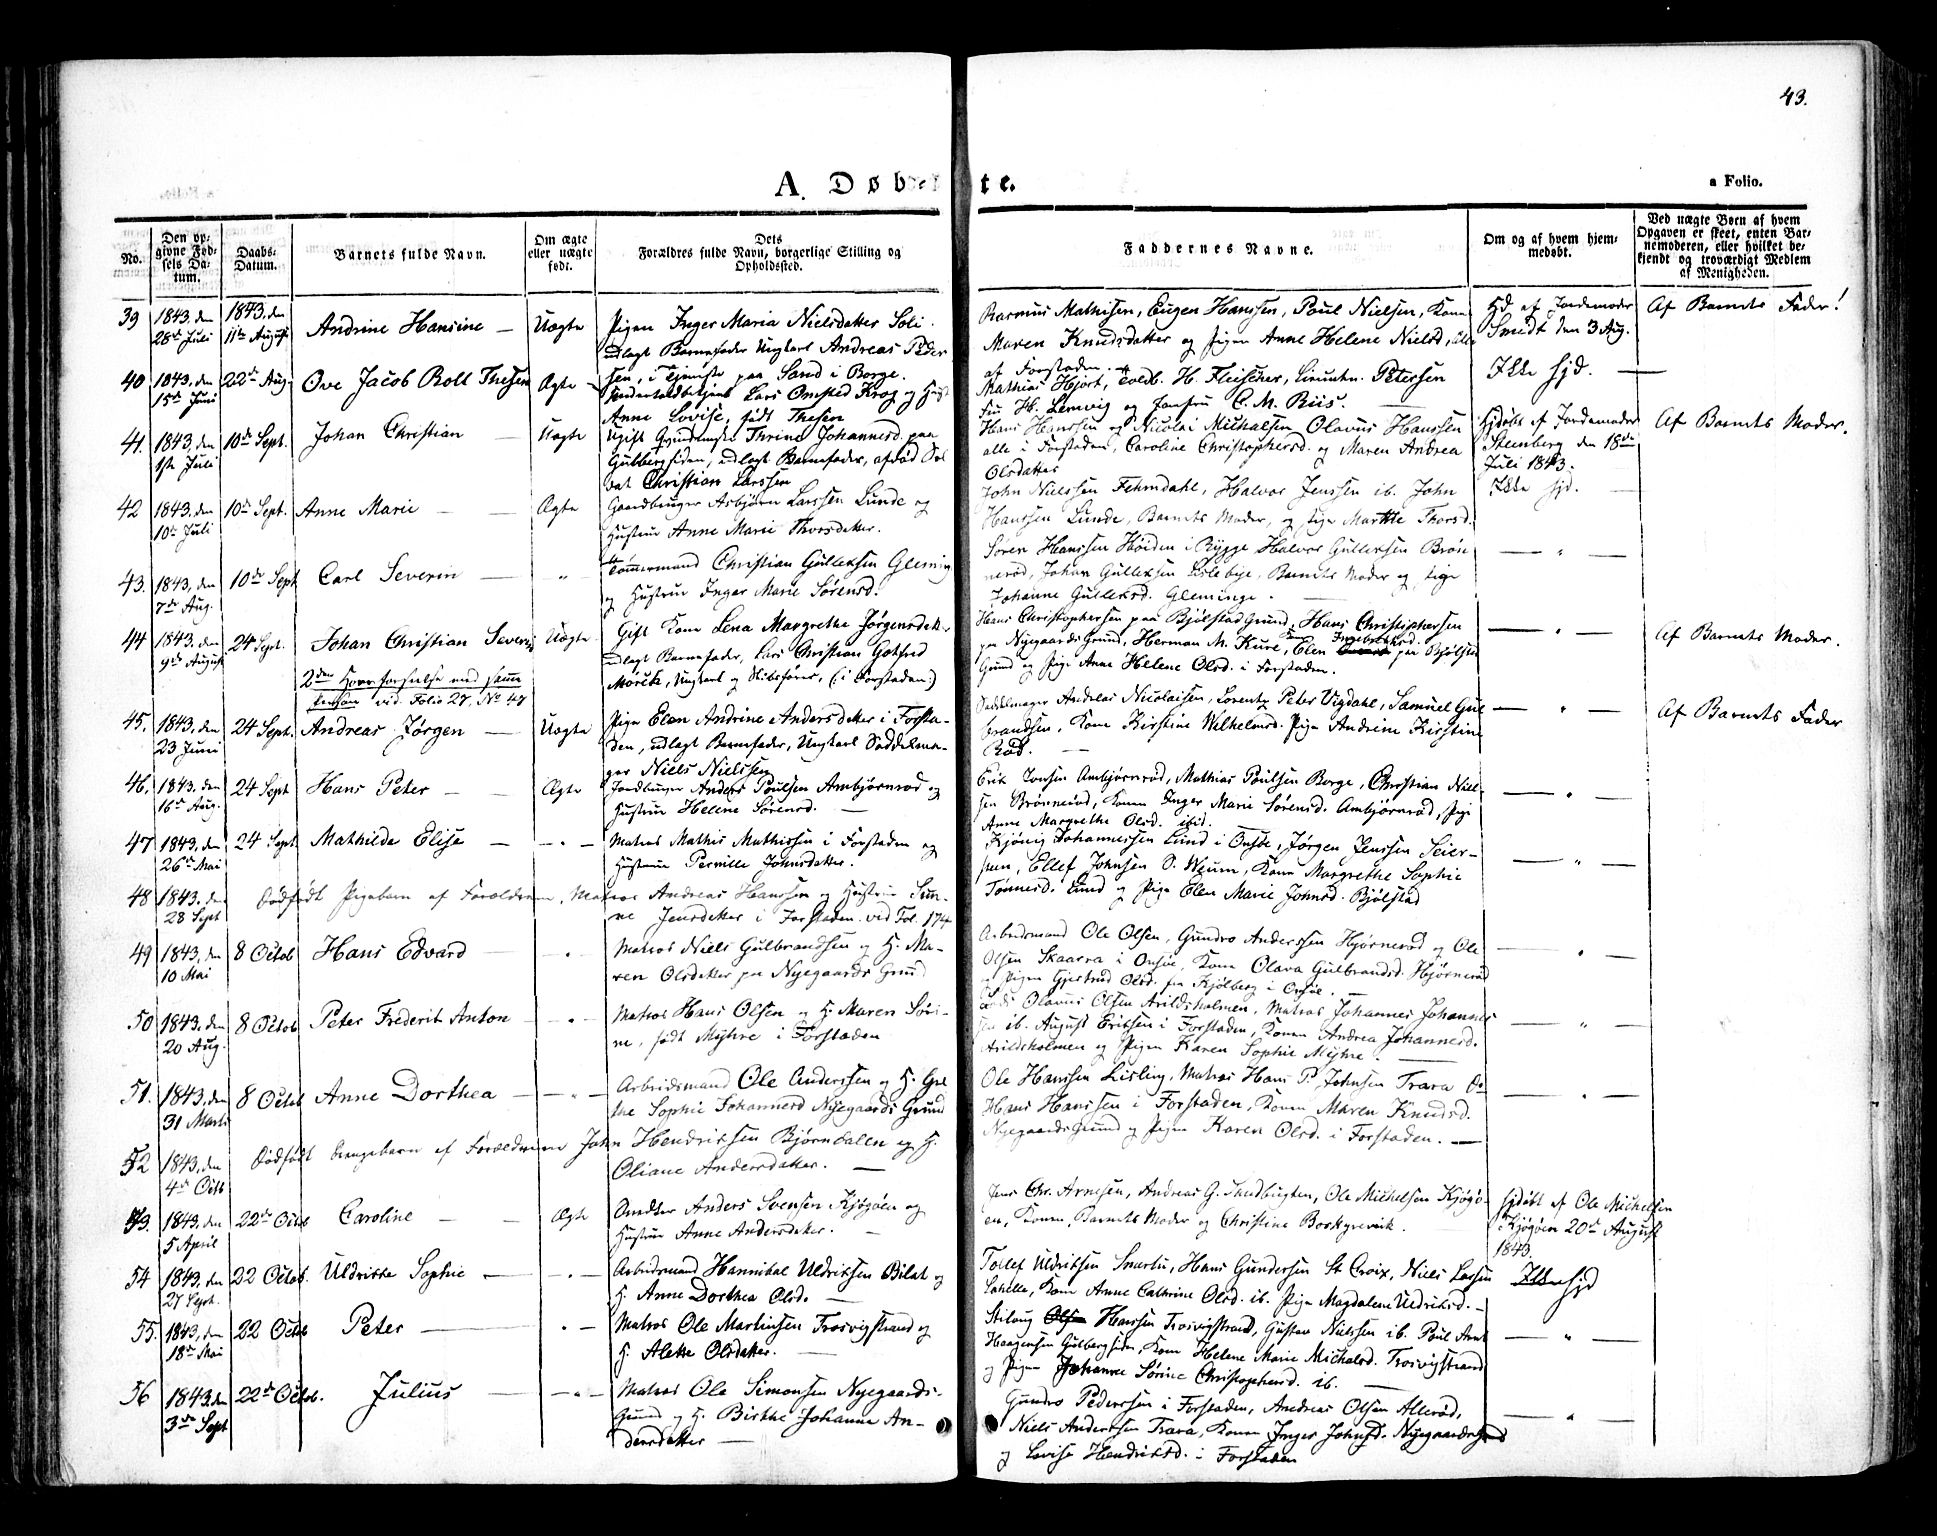 43.
A. Døbte.
a Folio.
No.
Den op-
givne Fød-
sels Da-
tum.
Daabs-
Datum.
Barnets fulde Navn.
Om ægte
eller uægte
født.
Dets
Forældres fulde Navn, borgerlige Stilling og
Opholdssted.
Faddernes Navne.
Om og af hvem hjem-
medøbt.
Ved uægte Børn af hvem
Opgaven er skeet, enten Bar-
nemoderen, eller hvilket be-
kjendt og troværdigt Medlem
af Menigheden.
39
1843, den
28de Juli
1843, den
11te August
Andrine Hansine
Uægte
Pigen Inger Maria Nielsdatter Soli.
udlagt Barnefader Ungkarl Andreas Peder
sen, i Tjeneste paa Sand i Borge.
Rasmus Mathisen, Eugen Hanssen, Poul Nielsen, Kone
Maren Knudsdatter og Pigen Anne Helene Nielsd, alle
af Forstaden.
Hjd af Jordemoder
Smidt den 3 Aug.
Af Barnets Fader!
40
1843, den
15de Juni
22de Aug
Ove Jacob Roll Thesen
Ægte
Lars Omsted Krog og Hust
Anne Lovise, født Thesen
Mathias Hjort, H. Fleischer, Petersen
Fru H. Lemvig og Jomfru C. M. Riis.
Ikke hjd.
41.
1843, den
1ste Juli
10de Sept.
Johan Christian
Uægte
Ugift Thrine Johannesd. paa
Gulbergsiden, udlagt Barnefader, afdød Sol
dat Christian Larssen
Hans Hanssen og Nicolai Michalsen, Olavus Hanssen
alle i Forstaden, Caroline Christophersd. og Maren Andrea
Olsdatter
Hjdøbt af Jordemoder
Stenberg den 18de
Juli 1843.
Af Barnets Moder.
42
1843, den
10de Juli
10de Sept.
Anne Marie
Ægte
Gaardbruger Asbjørn Larssen Lunde og
Hustru Anne Marie Thorsdatter.
John Nielssen Fehmdahl, Halvor Jenssen ib. John
Hanssen Lunde, Barnets Moder, og Pige Marthe Thorsd.
Ikke hjd.
43.
1843, den
7de Aug.
10de Sept
Carl Severin
Tømmermand Christian Gulleksen Gleming
og Hustru Inger Marie Sørensd.
Søren Hanssen Høiden i Rygge Halvor Gulleksen Brøn
nerød, Johan Gulleksen Lislebye, Barnets Moder og Pige
Johanne Gulleksd. Gleminge.
44
1843, den
9de August
24 Sept.
Johan Christian Severin
2den Hoorforseelse med samme
Person vid. Folio 27, No 47
Uægte
Gift Kone Lena Margrethe Jørgensdatter
udlagt Barnefader, Lars Christian Gotfred
Mørck, Ungkarl og Skibsfører, (i Forstaden.)
Hans Christophersen paa Bjølstad Grund, Hans Christophersen
paa Nyegaards Grund, Herman M. Kure, Kone Elen Ingebretsd. paa Bjølstad
Grund og Pige Anne Helene Olsd. i Forstaden.
Af Barnets Moder.
45.
1843, den
23 Juni
24 Sept.
Andreas Jørgen
Uægte
Pige Elen Andrine Andersdatter i Forsta-
den, udlagt Barnefader, Ungkarl Saddelma-
ger Niels Nielssen
Saddelmager Andreas Nicolaisen, Lorentz Peter Vigdahl, Samuel Gul
brandsen, Kone Kirstine Wilhelmsd. Pige Andrine Kirstine
Rød.
Af Barnets Fader
46.
1843, den
16de Aug.
24 Sept
Hans Peter
Ægte
Jordbruger Anders Poulsen Ambjørnrød og
Hustru Helene Sørensd.
Erik Jonsen Ambjørnrød, Mathias Poulsen Borge, Christian Niel-
sen Brønnerød, Konen Inger Marie Sørensd. Ambjørnrød, Pige
Anne Margrethe Olsd. ibid.
47
1843, den
26de Mai
24 Sept
Mathilde Elise
Matros Mathis Mathissen i Forstaden og
Hustrue Pernille Johnsdatter.
Kjönig Johannessen Lund i Onsøe, Jørgen Jenssen Seier-
steen, Ellef Johnsen Ø. Weum, Kone Margrethe Sophie
Tønnesd. Lund og Pige Elen Marie Johnsd. Bjølstad
48
1843, den
28 Sept
Dødfødt Pigebarn af Forældrene, Matros Andreas Hanssen og Hustrue Sun-
ne Jensdatter i Forstaden. vid Fol. 174
49
1843, den
10 Mai
8 Octob
Hans Edvard
Matros Niels Gulbrandsen og H. Ma-
ren Olsdatter paa Nyegaards Grund
Arbeidsmand Ole Olsen, Gundro Anderssen Hjørnerød og Ole
Olsen Skaarra i Onsøe, Kone Olava Gulbrandsd. Hjørnerød
og Pigen Gjertrud Olsd. fra Kjølberg i Onsøe.
50
1843, den
20 Aug.
8 Octob
Peter Frederik Anton
Matros Hans Olsen og H. Maren Søri-
ne, født Myhre i Forstaden
Olavus Olsen Arildsholmen, Matros Johannes Johannes
sen ib. August Eriksen i Forstaden, Konen Andrea Johannesd.
Arildsholmen og Pigen Karen Sophie Myhre.
51.
1843, den
31 Marts
8 Octob
Anne Dorthea
Arbeidsmand Ole Anderssen og H. Gre
the Sophie Johannesd Nyegaards Grund
Ole Hanssen Lisling, Matros Hans P. Johnsen Trara
Hans Hanssen i Forstaden, Konen Maren Knudsd.
Nyegaards Grund og Pigen Karen Olsd. i Forstaden.
52
1843, den
4de Octb
Dødfødt Drengebarn af Forældrene John Hendriksen Bjørndalen og H.
Oliane Andersdatter.
53.
1843, den
5 April
22de Octob
Caroline
Ægte
Anders Svensen Kjøgøen og
Hustrue Anne Andersdatter.
Jens Chr. Arnesen, Andreas G. Smedbugten, Ole Michelsen Kjøgø-
en, Konen, Barnets Moder og Christine Borkgrevink.
Hjdøbt af Ole Michelsen
Kjøgøen 20de August
1843.
54
1843, den
27 Sept.
22 Octob.
Uldrikke Sophie
Arbeidsmand Hannibal Uldriksen Bilat og
H. Anne Dorthea Olsd.
Tollef Uldriksen Smertu, Hans Gundersen St Croix, Niels Larsen
Lahella, Kone Anne Cathrine Olsd. ib. Pige Magdalene Uldriksd.
Ikke hjd
55.
1843, den
18de Mai
22 Octob
Peter
Matros Ole Martinsen Trosvigstrand og
H. Alette Olsdatter.
Hanssen Trosvigstrand, Gustav Nielssen ib. Poul Ant
Haagensen Gulbergsiden, Kone Helene Marie Michelsd. Trosvigstrand
og Pigen Johanne Sørine Christophersd. ib.
56
1843. den
3de Sept
22de Octob.
Julius
Matros Ole Simonsen Nyegaards-
Grund og H. Birthe Johanne An-
dersdatter
Gundro Pederssen i Forstaden, Andreas Olsen Allerød,
Niels Anderssen Trara, Konen Inger Johnsd. Nyegaardsgrund
og Lovise Hendriksd. i Forstaden